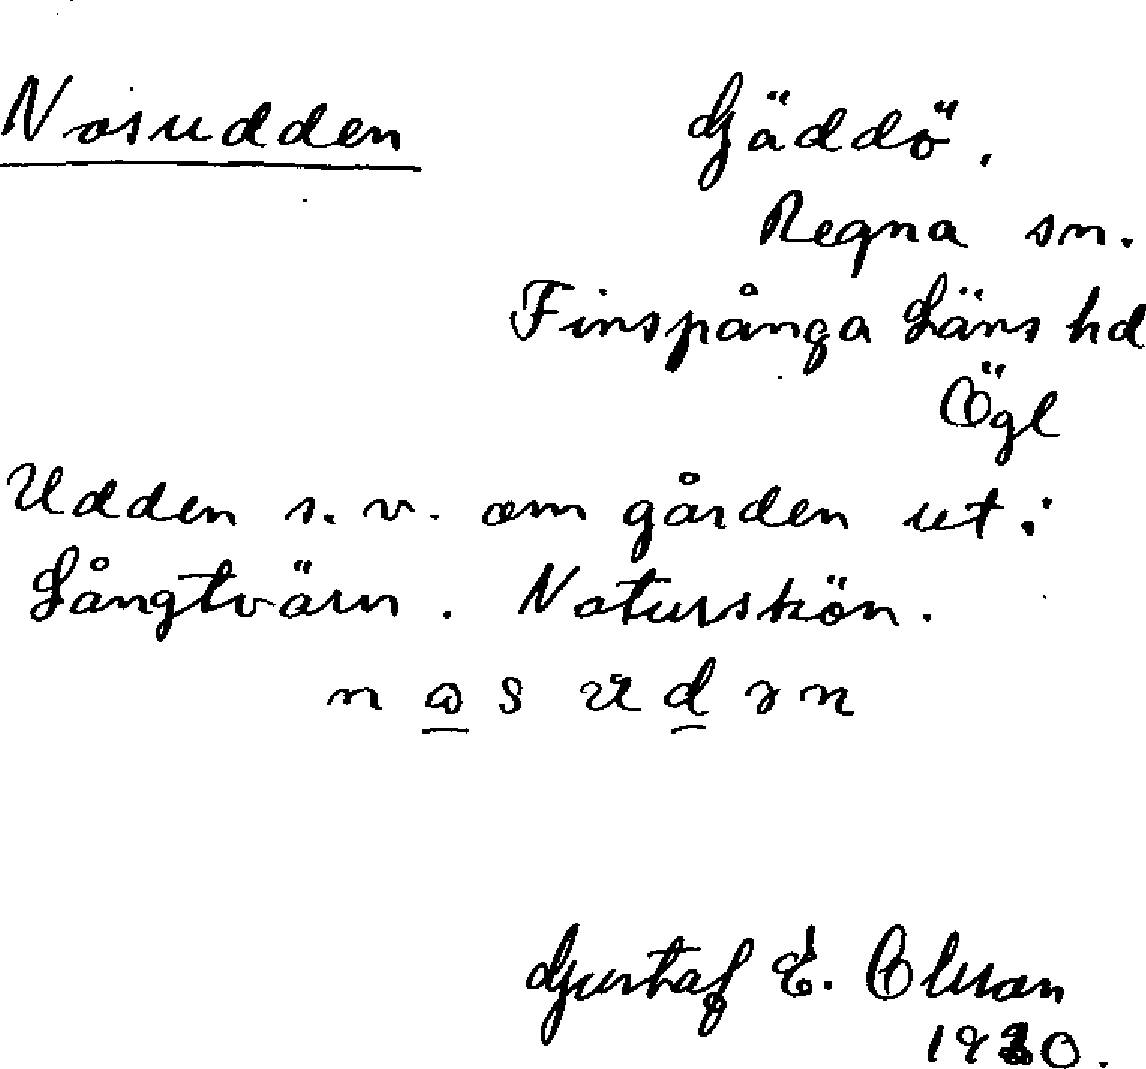 Nosudden
Gäddö.
Regna sn.
Finspånga Läns hd
Ögl
Udden s.v. om gården ut i
Långtvärn. Naturskön.
Gustaf E. Olsson